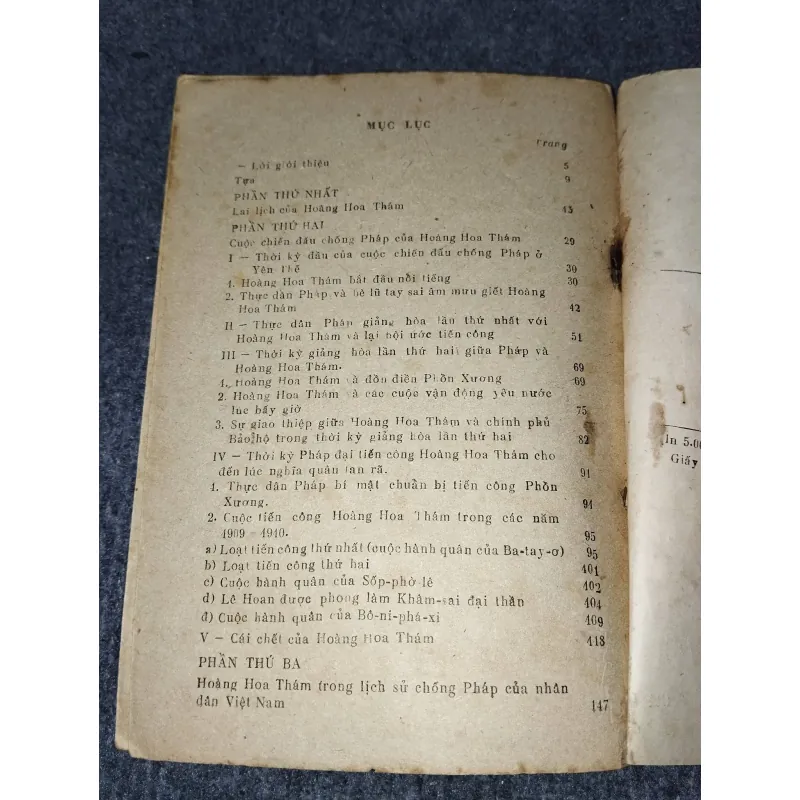 MỤC LỤC
Trang
— Lời giới thiệu 5
Tựa 9
PHẦN THỨ NHẤT
Lai lịch của Hoàng Hoa Thám 13
PHẦN THỨ HAI
Cuộc chiến đấu chống Pháp của Hoàng Hoa Thám 29
I — Thời kỳ đầu của cuộc chiến đấu chống Pháp ở
Yên Thế 30
1. Hoàng Hoa Thám bắt đầu nổi tiếng 30
2. Thực dân Pháp và bè lũ tay sai âm mưu giết Hoàng
Hoa Thám 42
II — Thực dân Pháp giảng hòa lần thứ nhất với
Hoàng Hoa Thám và lại bội ước tiến công 51
III — Thời kỳ giảng hòa lần thứ hai giữa Pháp và
Hoàng Hoa Thám. 69
1. Hoàng Hoa Thám và đồn điền Phồn Xương 69
2. Hoàng Hoa Thám và các cuộc vận động yêu nước
lúc bấy giờ 75
3. Sự giao thiệp giữa Hoàng Hoa Thám và chính phủ
Bảo hộ trong thời kỳ giảng hòa lần thứ hai 82
IV — Thời kỳ Pháp đại tiến công Hoàng Hoa Thám cho
đến lúc nghĩa quân tan rã. 91
1. Thực dân Pháp bí mật chuẩn bị tiến công Phồn
Xương. 91
2. Cuộc tiến công Hoàng Hoa Thám trong các năm
1909 - 1910. 95
a) Loạt tiến công thứ nhất (cuộc hành quân của Ba-tay-ơ) 95
b) Loạt tiến công thứ hai 101
c) Cuộc hành quân của Sốp-phờ-lê 102
d) Lê Hoan được phong làm Khâm-sai đại thần 104
đ) Cuộc hành quân của Bô-ni-pha-xi 109
V — Cái chết của Hoàng Hoa Thám 118
PHẦN THỨ BA
Hoàng Hoa Thám trong lịch sử chống Pháp của nhân
dân Việt Nam 147
In 5.0
Giấy